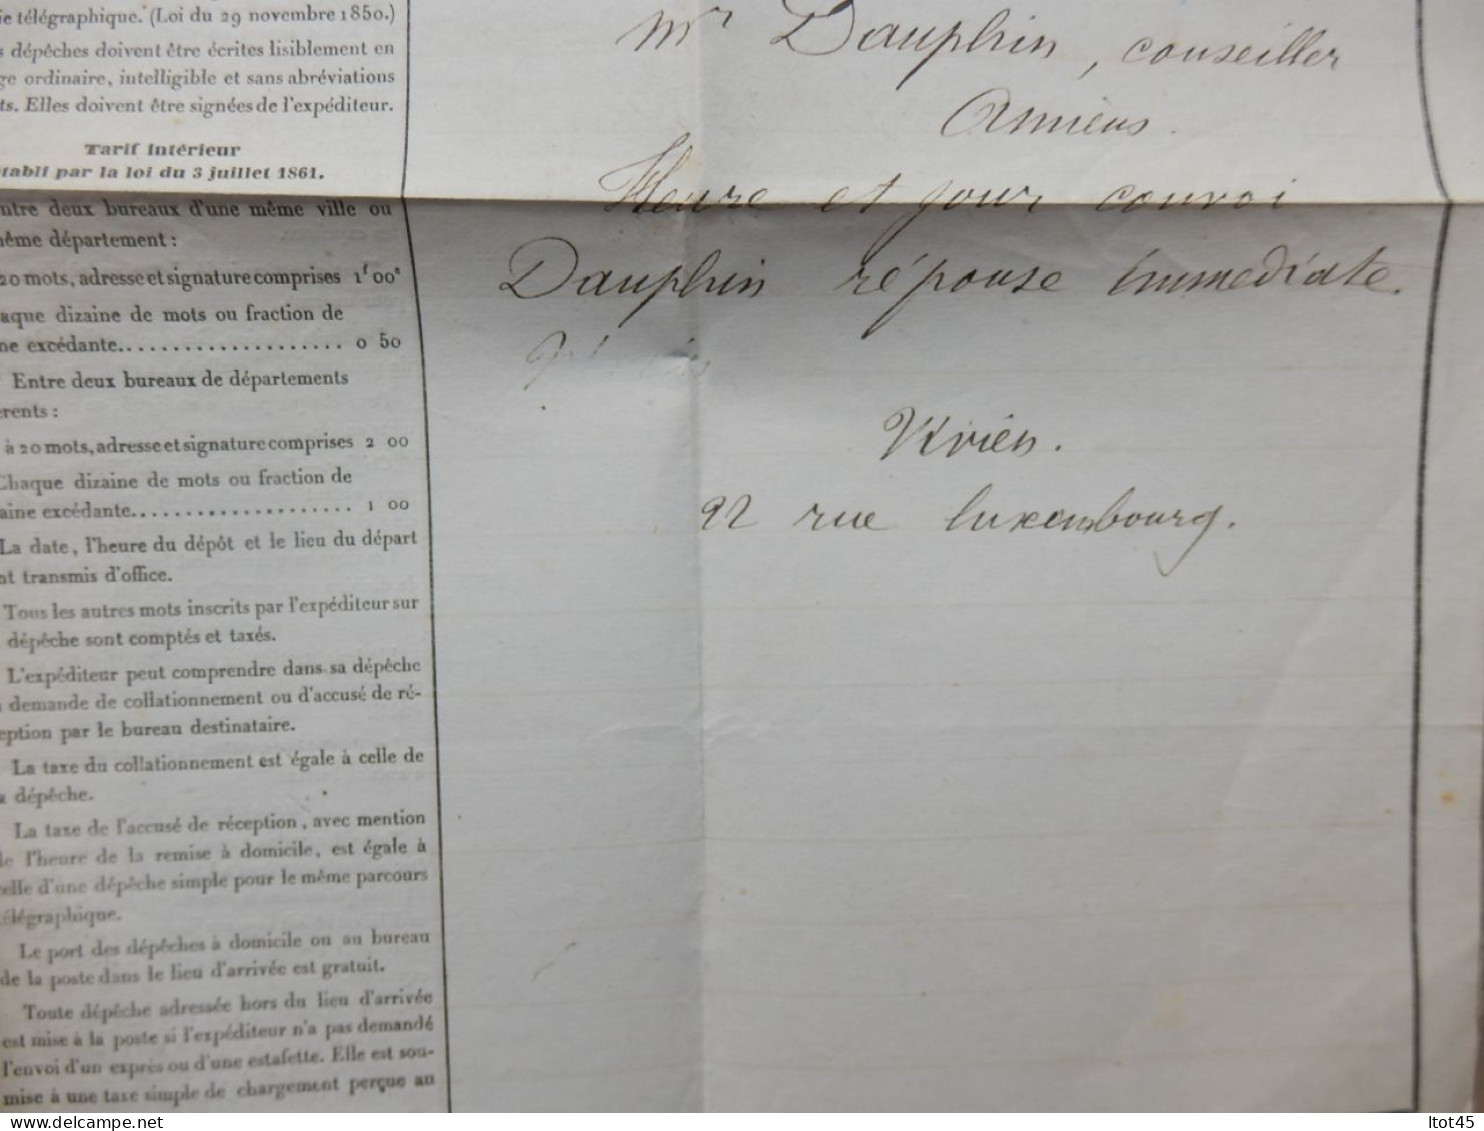 ie télégraphique. (Loi du 29 novembre 1850.)
s dépêches doivent être écrites lisiblement en
ge ordinaire, intelligible et sans abréviations
ts. Elles doivent être signées de l'expéditeur.
Tarif intérieur
établi par la loi du 3 juillet 1861.
ntre deux bureaux d'une même ville ou
nême département :
20 mots, adresse et signature comprises 1f 00c
aque dizaine de mots ou fraction de
ne excédante.................... 0 50
Entre deux bureaux de départements
érents :
à 20 mots, adresse et signature comprises 2 00
Chaque dizaine de mots ou fraction de
aine excédante.................... 1 00
La date, l'heure du dépôt et le lieu du départ
nt transmis d'office.
Tous les autres mots inscrits par l'expéditeur sur
dépêche sont comptés et taxés.
L'expéditeur peut comprendre dans sa dépêche
a demande de collationnement ou d'accusé de ré-
eption par le bureau destinataire.
La taxe du collationnement est égale à celle de
a dépêche.
La taxe de l'accusé de réception, avec mention
de l'heure de la remise à domicile, est égale à
celle d'une dépêche simple pour le même parcours
télégraphique.
Le port des dépêches à domicile ou au bureau
de la poste dans le lieu d'arrivée est gratuit.
Toute dépêche adressée hors du lieu d'arrivée
est mise à la poste si l'expéditeur n'a pas demandé
l'envoi d'un exprès ou d'une estafette. Elle est sou-
mise à une taxe simple de chargement perçue au
Mr Dauphin, conseiller
Amiens.
Heure et jour convoi
Dauphin réponse immediate.
Vivien.
92 rue luxembourg.
Itot45